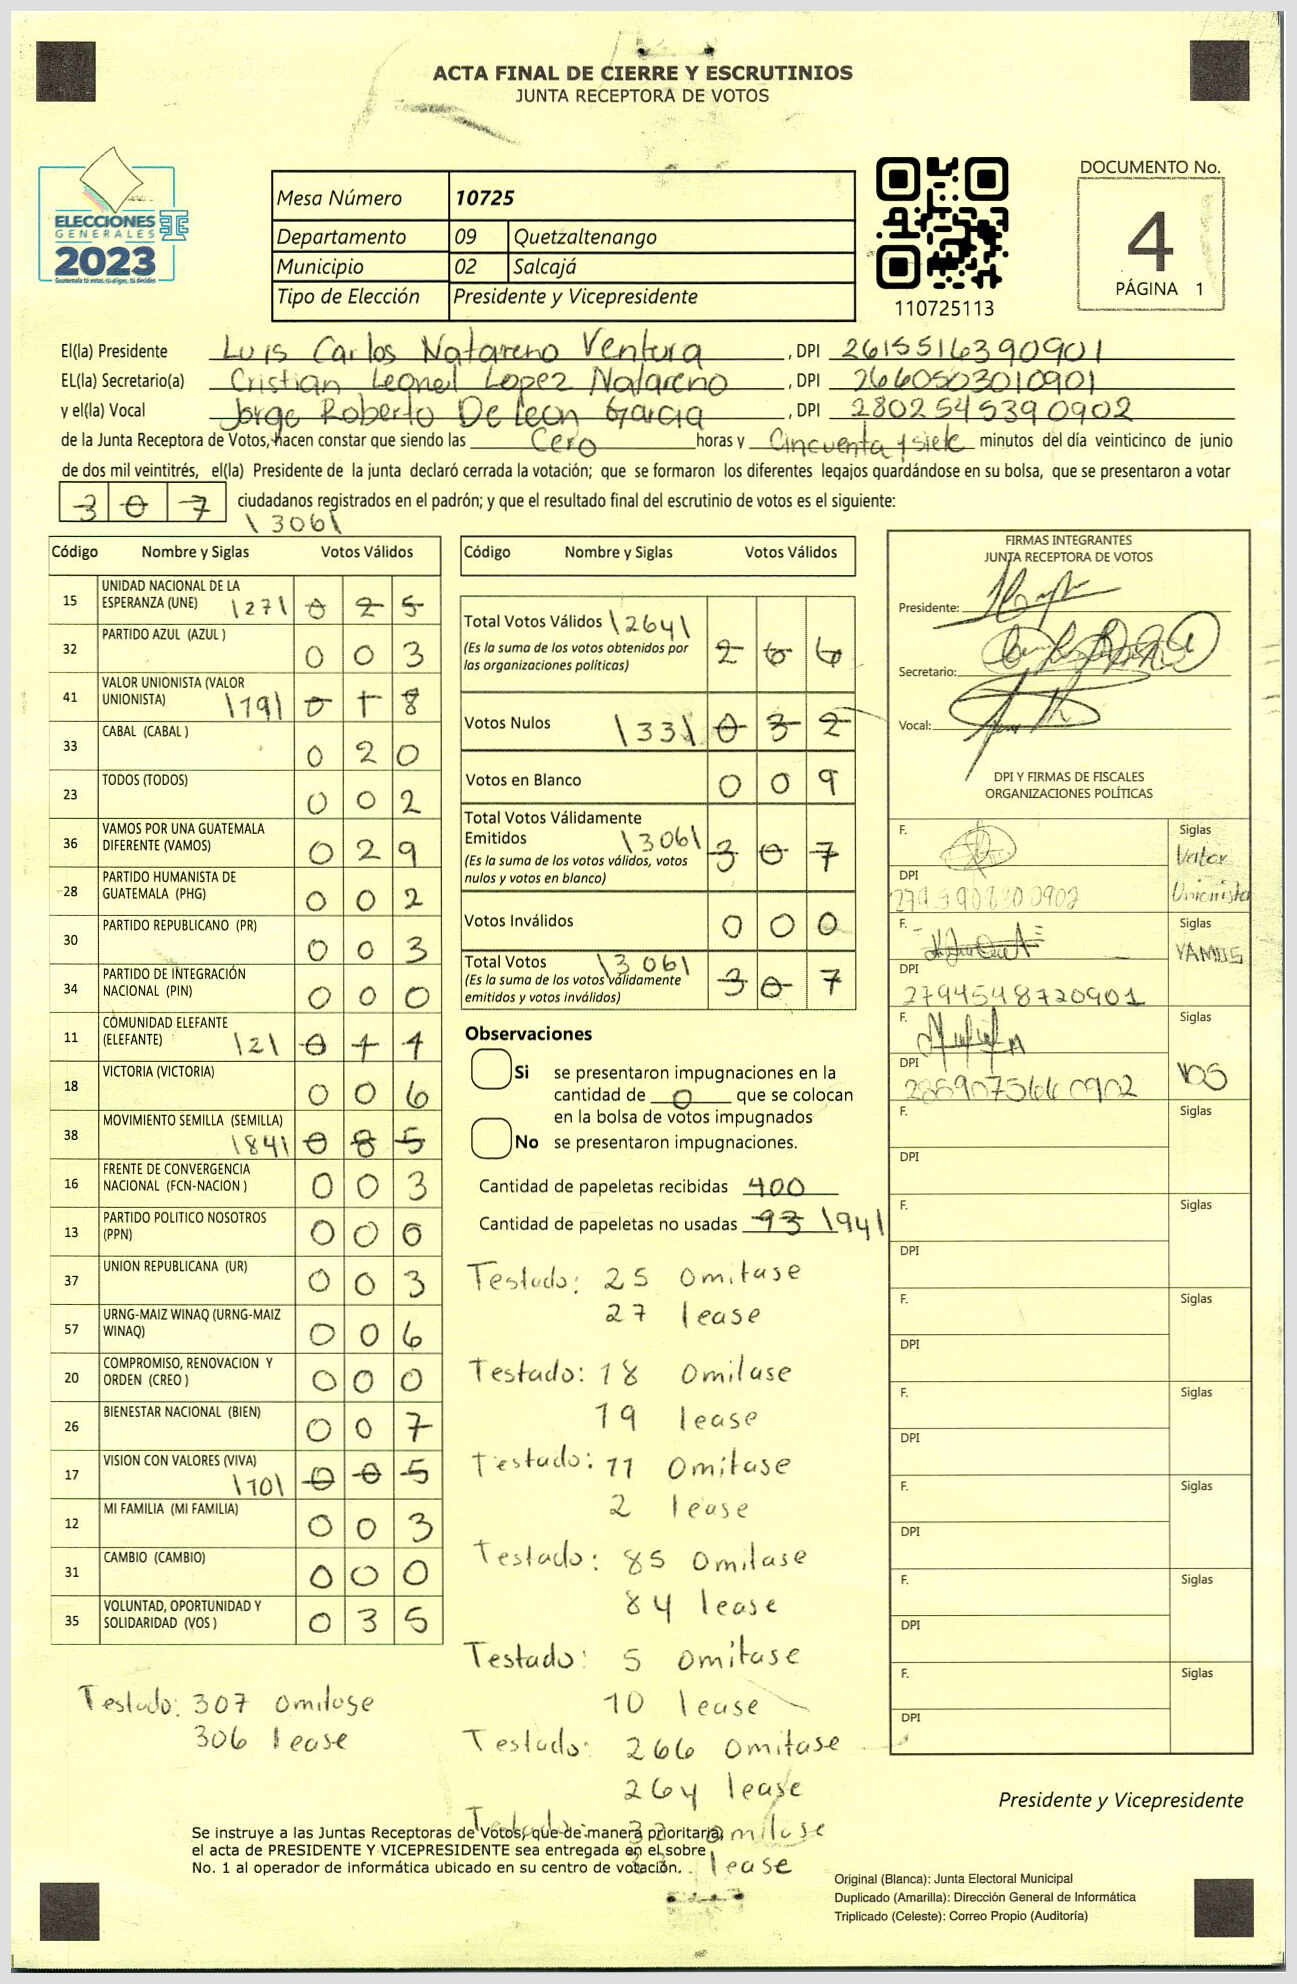 ACTA FINAL DE CIERRE Y ESCRUTINIOS
JUNTA RECEPTORA DE VOTOS
ELECCIONES
GENERALES
2023
Mesa Número 10725
Departamento 09 Quetzaltenango
Municipio 02 Salcajá
Tipo de Elección Presidente y Vicepresidente
110725113
DOCUMENTO No.
4
PÁGINA 1
El(la) Presidente Luis Carlos Natareno Ventura , DPI 2615516390901
EL(la) Secretario(a) Cristian Leonel Lopez Natareno , DPI 2660503010901
y el(la) Vocal Jorge Roberto De Leon Garcia , DPI 2802545390902
de la Junta Receptora de Votos, hacen constar que siendo las Cero horas y Cincuenta y siete minutos del día veinticinco de junio
de dos mil veintitrés, el(la) Presidente de la junta declaró cerrada la votación; que se formaron los diferentes legajos guardándose en su bolsa, que se presentaron a votar
3 0 7 ciudadanos registrados en el padrón; y que el resultado final del escrutinio de votos es el siguiente:
\306\
Código Nombre y Siglas Votos Válidos
15 UNIDAD NACIONAL DE LA
ESPERANZA (UNE) \27\ 0 2 5
32 PARTIDO AZUL (AZUL ) 0 0 3
41 VALOR UNIONISTA (VALOR
UNIONISTA) \19\ 0 1 8
33 CABAL (CABAL ) 0 2 0
23 TODOS (TODOS) 0 0 2
36 VAMOS POR UNA GUATEMALA
DIFERENTE (VAMOS) 0 2 9
28 PARTIDO HUMANISTA DE
GUATEMALA (PHG) 0 0 2
30 PARTIDO REPUBLICANO (PR) 0 0 3
34 PARTIDO DE INTEGRACIÓN
NACIONAL (PIN) 0 0 0
11 COMUNIDAD ELEFANTE
(ELEFANTE) \2\ 0 1 1
18 VICTORIA (VICTORIA) 0 0 6
38 MOVIMIENTO SEMILLA (SEMILLA)
\84\ 0 8 5
16 FRENTE DE CONVERGENCIA
NACIONAL (FCN-NACION ) 0 0 3
13 PARTIDO POLITICO NOSOTROS
(PPN) 0 0 0
37 UNION REPUBLICANA (UR) 0 0 3
57 URNG-MAIZ WINAQ (URNG-MAIZ
WINAQ) 0 0 6
20 COMPROMISO, RENOVACION Y
ORDEN (CREO ) 0 0 0
26 BIENESTAR NACIONAL (BIEN) 0 0 7
17 VISION CON VALORES (VIVA)
\10\ 0 0 5
12 MI FAMILIA (MI FAMILIA) 0 0 3
31 CAMBIO (CAMBIO) 0 0 0
35 VOLUNTAD, OPORTUNIDAD Y
SOLIDARIDAD (VOS ) 0 3 5
Testado: 307 omitase
306 lease
Código Nombre y Siglas Votos Válidos
Total Votos Válidos \264\ 2 6 6
(Es la suma de los votos obtenidos por
las organizaciones políticas)
Votos Nulos \33\ 0 3 2
Votos en Blanco 0 0 9
Total Votos Válidamente
Emitidos \306\ 3 0 7
(Es la suma de los votos válidos, votos
nulos y votos en blanco)
Votos Inválidos 0 0 0
Total Votos \306\ 3 0 7
(Es la suma de los votos válidamente
emitidos y votos inválidos)
Observaciones
Si se presentaron impugnaciones en la
cantidad de 0 que se colocan
en la bolsa de votos impugnados
No se presentaron impugnaciones.
Cantidad de papeletas recibidas 400
Cantidad de papeletas no usadas 93 \94\
Testado: 25 omitase
27 lease
Testado: 18 omitase
19 lease
Testado: 11 omitase
2 lease
Testado: 85 omitase
84 lease
Testado: 5 omitase
10 lease
Testado: 266 omitase
264 lease
Testado: 32 omitase
33 lease
FIRMAS INTEGRANTES
JUNTA RECEPTORA DE VOTOS
Presidente:
Secretario:
Vocal:
DPI Y FIRMAS DE FISCALES
ORGANIZACIONES POLÍTICAS
F. Siglas
Valor
DPI
Unionista
F. Siglas
VAMOS
DPI
2794548720901
F. Siglas
DPI VOS
2869075660902
F. Siglas
DPI
F. Siglas
DPI
F. Siglas
DPI
F. Siglas
DPI
F. Siglas
DPI
F. Siglas
DPI
F. Siglas
DPI
Presidente y Vicepresidente
Se instruye a las Juntas Receptoras de Votos, que de manera prioritaria,
el acta de PRESIDENTE Y VICEPRESIDENTE sea entregada en el sobre
No. 1 al operador de informática ubicado en su centro de votación.
Original (Blanca): Junta Electoral Municipal
Duplicado (Amarilla): Dirección General de Informática
Triplicado (Celeste): Correo Propio (Auditoría)